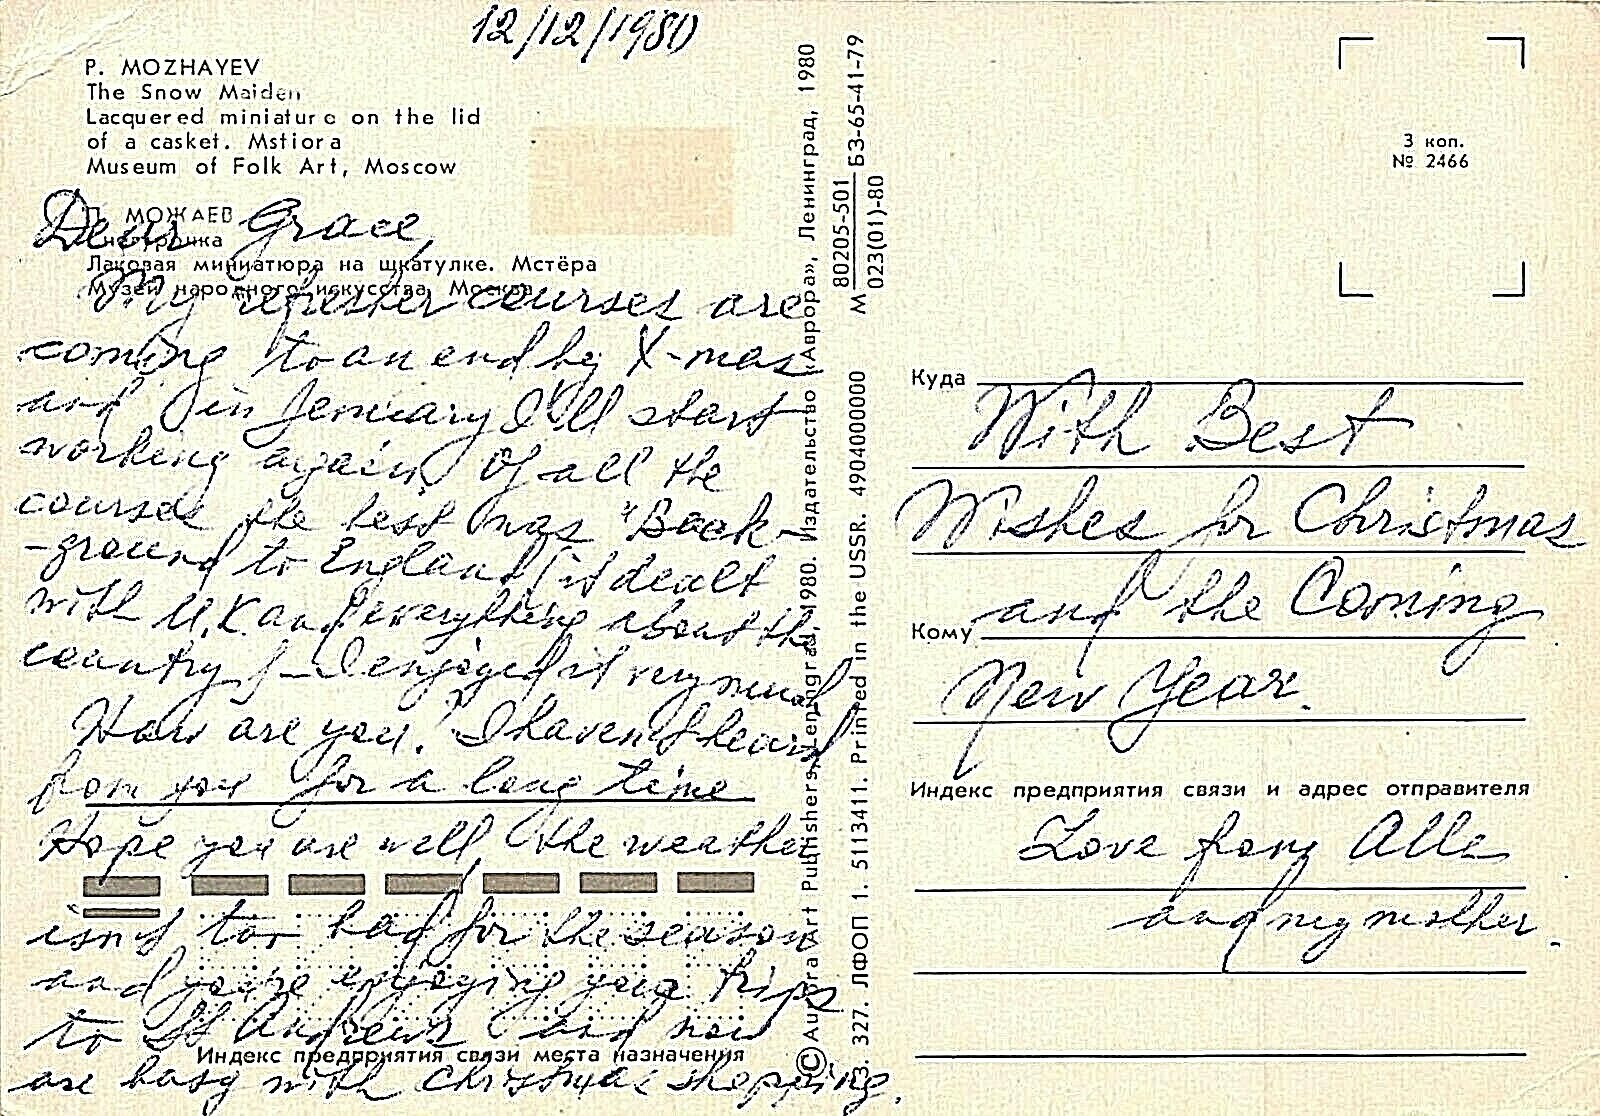 12/12/1980
P. MOZHAYEV
The Snow Maiden
Lacquered miniature on the lid
of a casket. Mstiora
Museum of Folk Art, Moscow
П. МОЖАЕВ
Снегурочка
Лаковая миниатюра на шкатулке. Мстёра
Музей народного искусства, Москва
Dear Grace,
My refresher courses are
coming to an end by X-mas
and in Jenuary I'll start
working again. Of all the
courses the best was "Back-
-ground to England (it dealt
with U.K and everything about the
country) - I enjoyed it very much
How are you? I haven't heard
from you for a long time
Hope you are well, the weather
isn't too bad for the season
and you're enjoying your trips
to St Andrews and now
are busy with christmas shopping.
Индекс предприятия связи места назначения
© Aurora Art Publishers, Leningrad, 1980. Издательство «Аврора», Ленинград, 1980
З. 327. ЛФОП 1. 5113411. Printed in the USSR. 4904000000 М 80205-501 БЗ-65-41-79
023(01)-80
3 коп.
№ 2466
Куда
With Best
Wishes for Christmas
and the Coming
Кому
New Year.
Индекс предприятия связи и адрес отправителя
Love from Alla
and my mother.